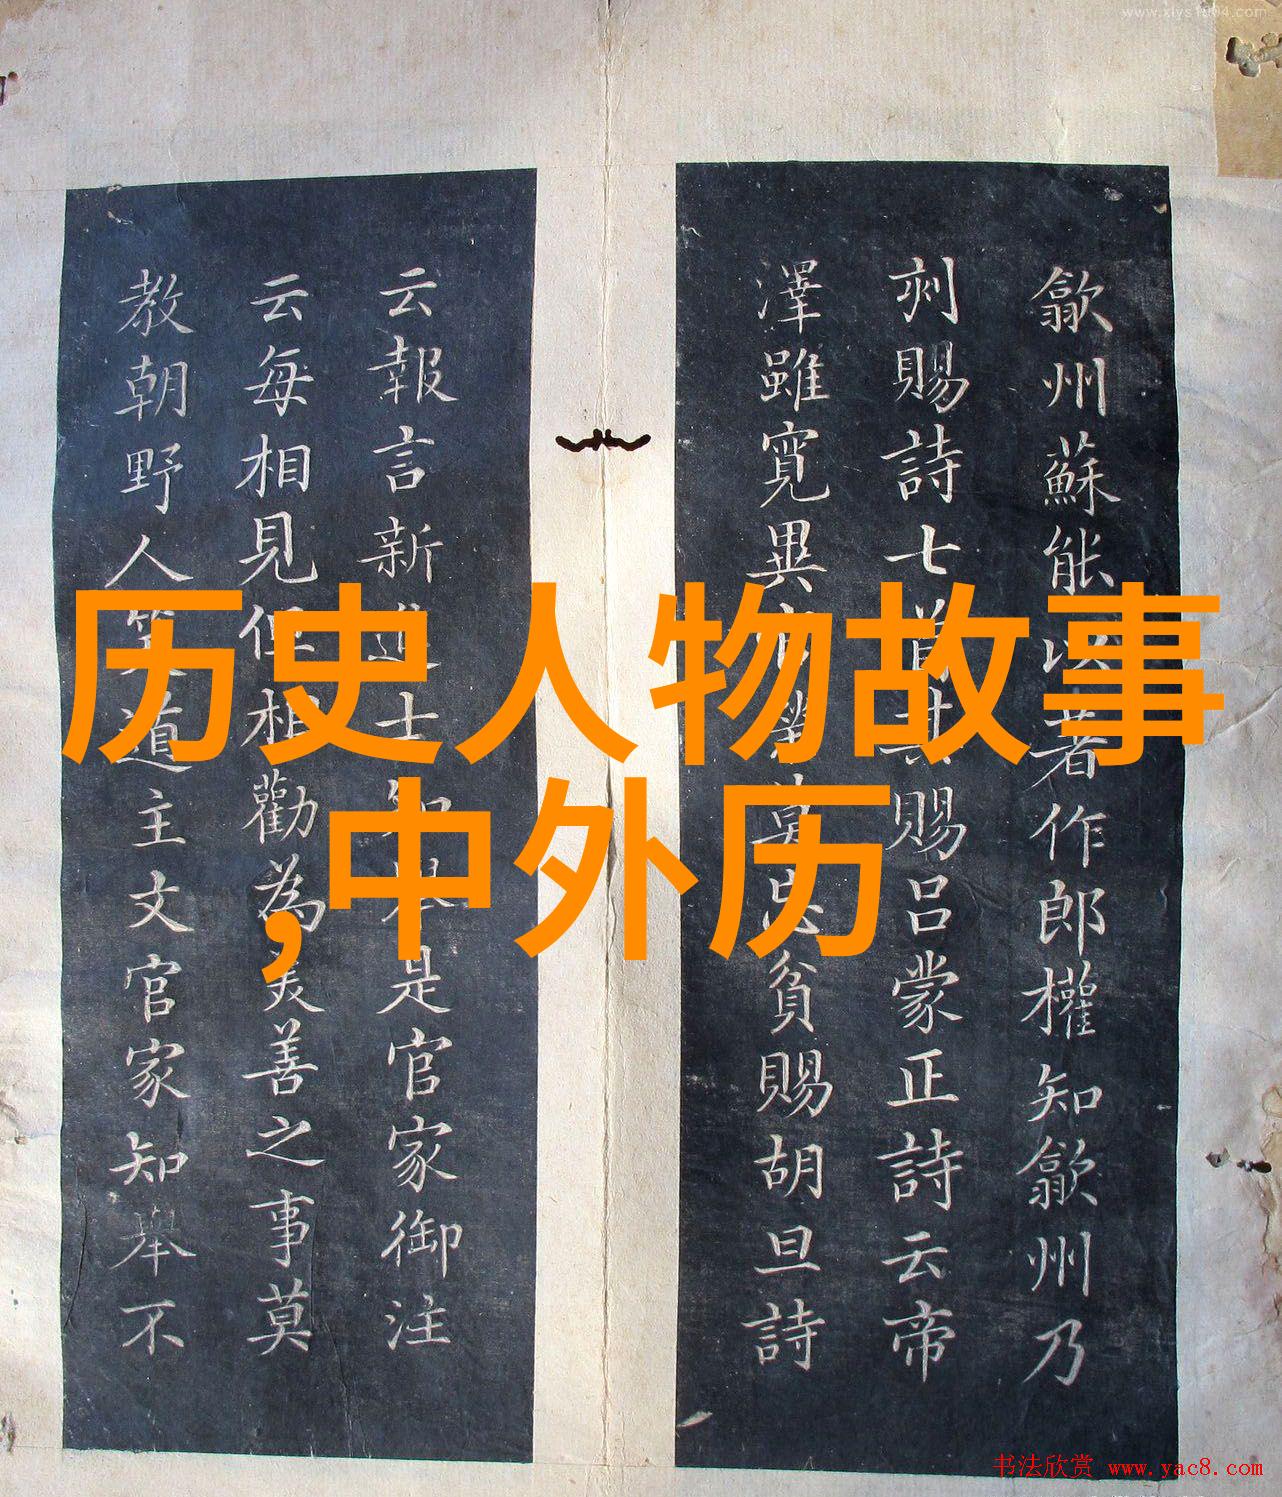 历史人物故事
,中外历
歙州蘇能以著作郎權知歙州乃
刺賜詩七首其賜呂蒙正詩云帝
澤雖寬異莫忘貧賜胡旦詩
云報言新進士知舉是官家御注
云每相見但相勸為美善之事莫
教朝野人笑道主文官家知舉不
书法欣赏 www.yac8.com